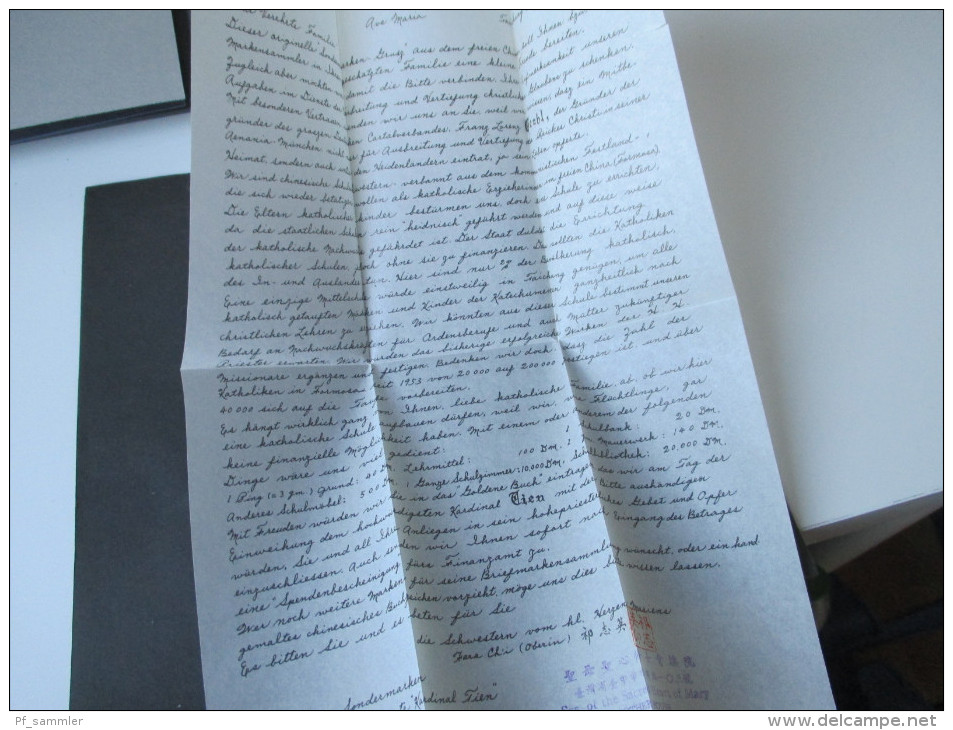 Verehrte Familie
Ave Maria
Dieser originelle aus dem freien
Markensammler in geschätzten Familie eine kleine Freude bereiten.
Zugleich aber möchten wir damit die Bitte verbinden. Ihre unseren
Aufgaben im Dienste der Ausbreitung und Vertiefung christlichen Glaubens zu schenken.
Mit besonderem Vertrauen wenden wir uns an Sie, weil wir wissen, dasz ein Mitbe-
gründer des groszen Cartellverbandes Franz Lorenz der Gründer der
Aenania-München nicht für Ausbreitung und Vertiefung des Reiches Christi in seiner
Heimat, sondern auch in den Heidenländern eintrat, ja sein Leben opferte.
Wir sind chinesische Schulschwestern - verbannt aus dem kommunistischen Festland -,
die sich wieder betätigen wollen als katholische Erzieherinnen in freien China (Formosa)
Die Eltern katholischer Kinder bestürmen uns, doch eine Schule zu errichten,
da die staatlichen Schulen rein "heidnisch" geführt werden und auf diese weise
der katholische Nachwuchs gefährdet ist. Der Staat duldet die Errichtung
katholischer Schulen, doch ohne sie zu finanzieren. Da sollten die Katholiken
des In- und Auslandes tun. Hier sind nur 2% der Bevölkerung katholisch.
Eine einzige Mittelschule würde einstweilig in Taichung genügen, um alle
katholisch getauften Mädchen und Kinder der Katechumenen ganzheitlich nach
christlichen Lehren zu erziehen. Wir könnten aus dieser Schule bestimmt unseren
Bedarf an Nachwuchskräften für Ordensberufe und auch Mütter zukünftiger
Priester erwarten. Wir würden das bisherige erfolgreiche Wirken der H. H.
Missionare ergänzen und festigen. Bedenken wir doch, dasz die Zahl der
Katholiken in Formosa seit 1953 von 20 000 auf 200 000 gestiegen ist und über
40 000 sich auf die Taufe vorbereiten.
Es hängt wirklich ganz von Ihnen, liebe katholische Familie, ab, ob wir hier
eine katholische Schule aufbauen dürfen, weil wir, wie Flüchtlinge, gar
keine finanzielle Möglichkeit haben. Mit einem oder anderem der folgenden
Dinge wäre uns viel gedient: 1 Schulbank: 20 Dm.
1 Ping (=3 qm.) Grund: 40 DM. Lehrmittel: 100 DM. Mauerwerk: 140 DM.
Anderes Schulmöbel: 50 DM. 1 Ganze Schulzimmer: 10.000 DM. 20.000 DM.
Mit Freuden würden wir Sie in das "Goldene Buch" eintragen, das wir am Tag der
Einweihung dem hochwürdigsten Kardinal Tien mit der Bitte aushändigen
würden, Sie und all Ihre Anliegen in sein hohepriesterliches Gebet und Opfer
einzuschliessen. Auch senden wir Ihnen sofort nach Eingang des Betrages
eine "Spendenbescheinigung" fürs Finanzamt zu.
Wer noch weitere Marken für seine Briefmarkensammlung wünscht, oder ein hand
gemaltes chinesisches Buchzeichen vorzieht, möge uns dies bitte wissen lassen.
Es bitten Sie und es beten für Sie
die Schwestern vom hl. Herzen Mariens
Fara Ch'i (Oberin) 祁志英
Sondermarken
"Kardinal Tien"
of the Heart of Mary
Pf_sammler
www.delcampe.net